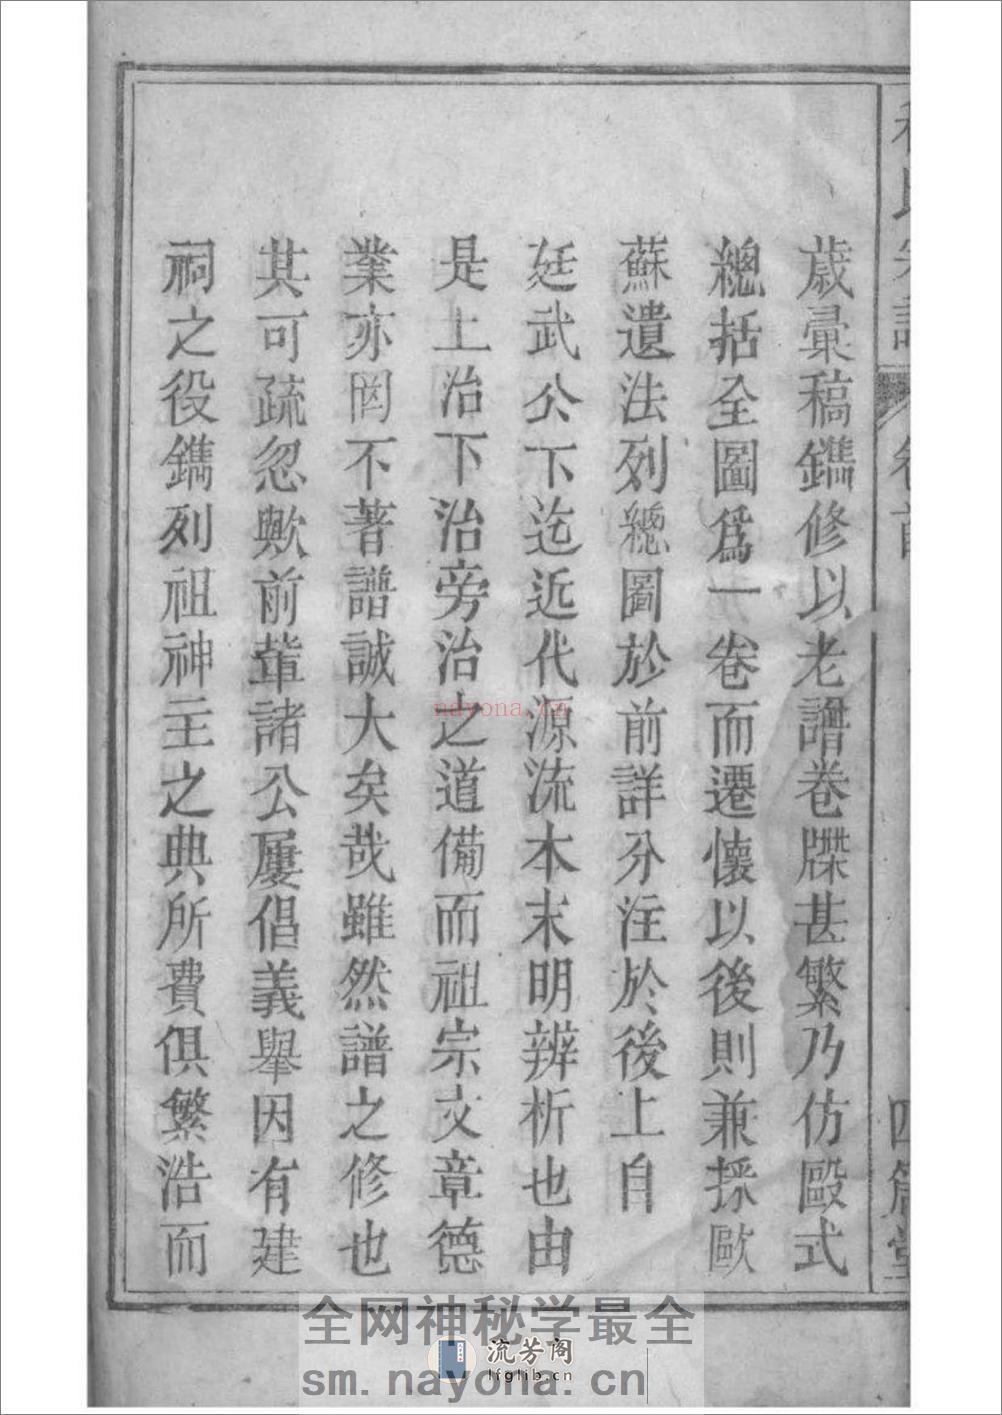 歲彚稿鐫修以老譜卷牒甚繁乃仿毆式
總括全圖爲一卷而遷懷以後則兼採歐
蘇遺法列總圖於前詳分注於後上自
廷武公下迄近代源流本末明辨析也由
是上治下治旁治之道備而祖宗文章德
業亦罔不著譜誠大矣哉雖然譜之修也
其可疏忽歟前輩諸公屢倡義舉因有建
祠之役鐫列祖神主之典所費俱繁浩而
nayona.cn
全网神秘学最全
流芳阁
lfglib.cn
sm.nayona.cn